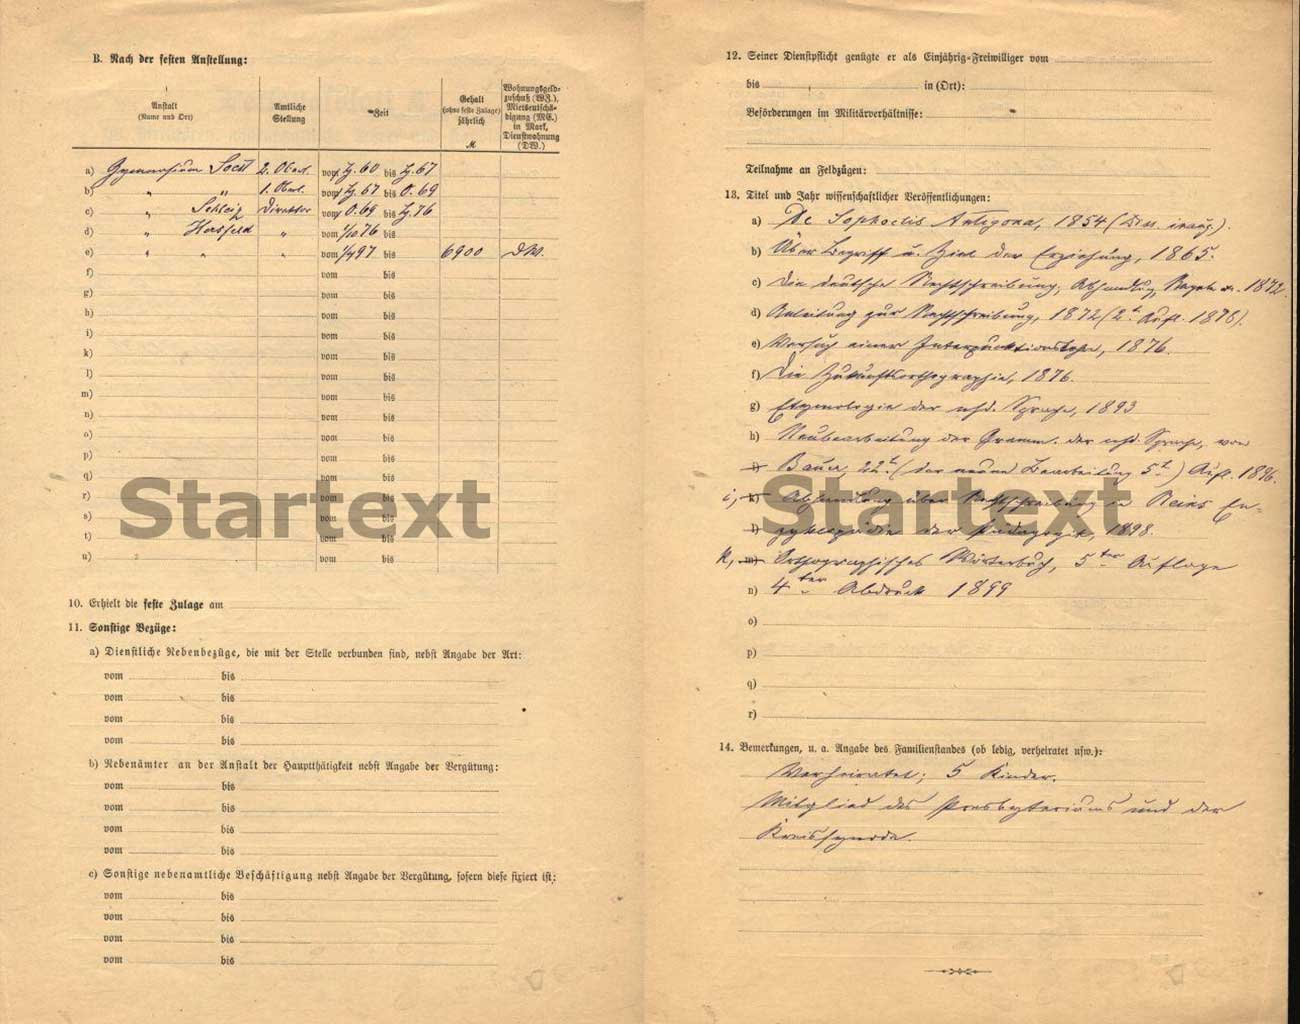 B. Nach der festen Anstellung:
Anstalt
(Name und Ort)
Amtliche
Stellung
Zeit
Gehalt
(ohne feste Zulage)
jährlich
M
Wohnungsgeld-
zuschuß (WZ.),
Mietsentschä-
digung (ME.)
in Mark,
Dienstwohnung
(DW.)
a) Gymnasium Soest 2. Oberl. vom H. 60 bis H. 67
b) " " 1. Oberl. vom H. 67 bis O. 69
c) " Schleiz Direktor vom O. 69 bis H. 76
d) " Hersfeld " vom 1/10 76 bis
e) " " " vom 1/4 97 bis 6900 DW.
f) vom bis
g) vom bis
h) vom bis
i) vom bis
k) vom bis
l) vom bis
m) vom bis
n) vom bis
o) vom bis
p) vom bis
q) vom bis
r) vom bis
s) vom bis
t) vom bis
u) vom bis
Startext
10. Erhielt die feste Zulage am
11. Sonstige Bezüge:
a) Dienstliche Nebenbezüge, die mit der Stelle verbunden sind, nebst Angabe der Art:
vom bis
vom bis
vom bis
vom bis
b) Nebenämter an der Anstalt der Hauptthätigkeit nebst Angabe der Vergütung:
vom bis
vom bis
vom bis
vom bis
c) Sonstige nebenamtliche Beschäftigung nebst Angabe der Vergütung, sofern diese fixiert ist:
vom bis
vom bis
vom bis
vom bis
12. Seiner Dienstpflicht genügte er als Einjährig-Freiwilliger vom
bis in (Ort):
Beförderungen im Militärverhältnisse:
Teilnahme an Feldzügen:
13. Titel und Jahr wissenschaftlicher Veröffentlichungen:
a) De Sophoclis Antigona, 1854 (Diss. inaug.).
b) Über Begriff u. Ziel der Erziehung, 1865.
c) Die deutsche Rechtschreibung, Abhandlung, Regeln 1872.
d) Anleitung zur Rechtschreibung, 1872 (2t. Aufl. 1876).
e) Versuch einer Interpunktionslehre, 1876.
f) Die Zukunftsorthographie, 1876.
g) Etymologie der nhd. Sprache, 1893
h) Neubearbeitung der Gramm. der nhd. Sprache, von
i) Bauer, 22t. (der neuen Bearbeitung 5t) Aufl. 1896.
i, k) Abhandlung über Rechtschreibung in Reins En-
l) zyklopädie der Pädagogik, 1898.
k, m) Orthographisches Wörterbuch, 5ter Auflage
n) 4ter Abdruck 1899
o)
p)
q)
r)
Startext
14. Bemerkungen, u. a. Angabe des Familienstandes (ob ledig, verheiratet usw.):
Verheiratet; 5 Kinder.
Mitglied des Presbyteriums und der
Kreissynode.